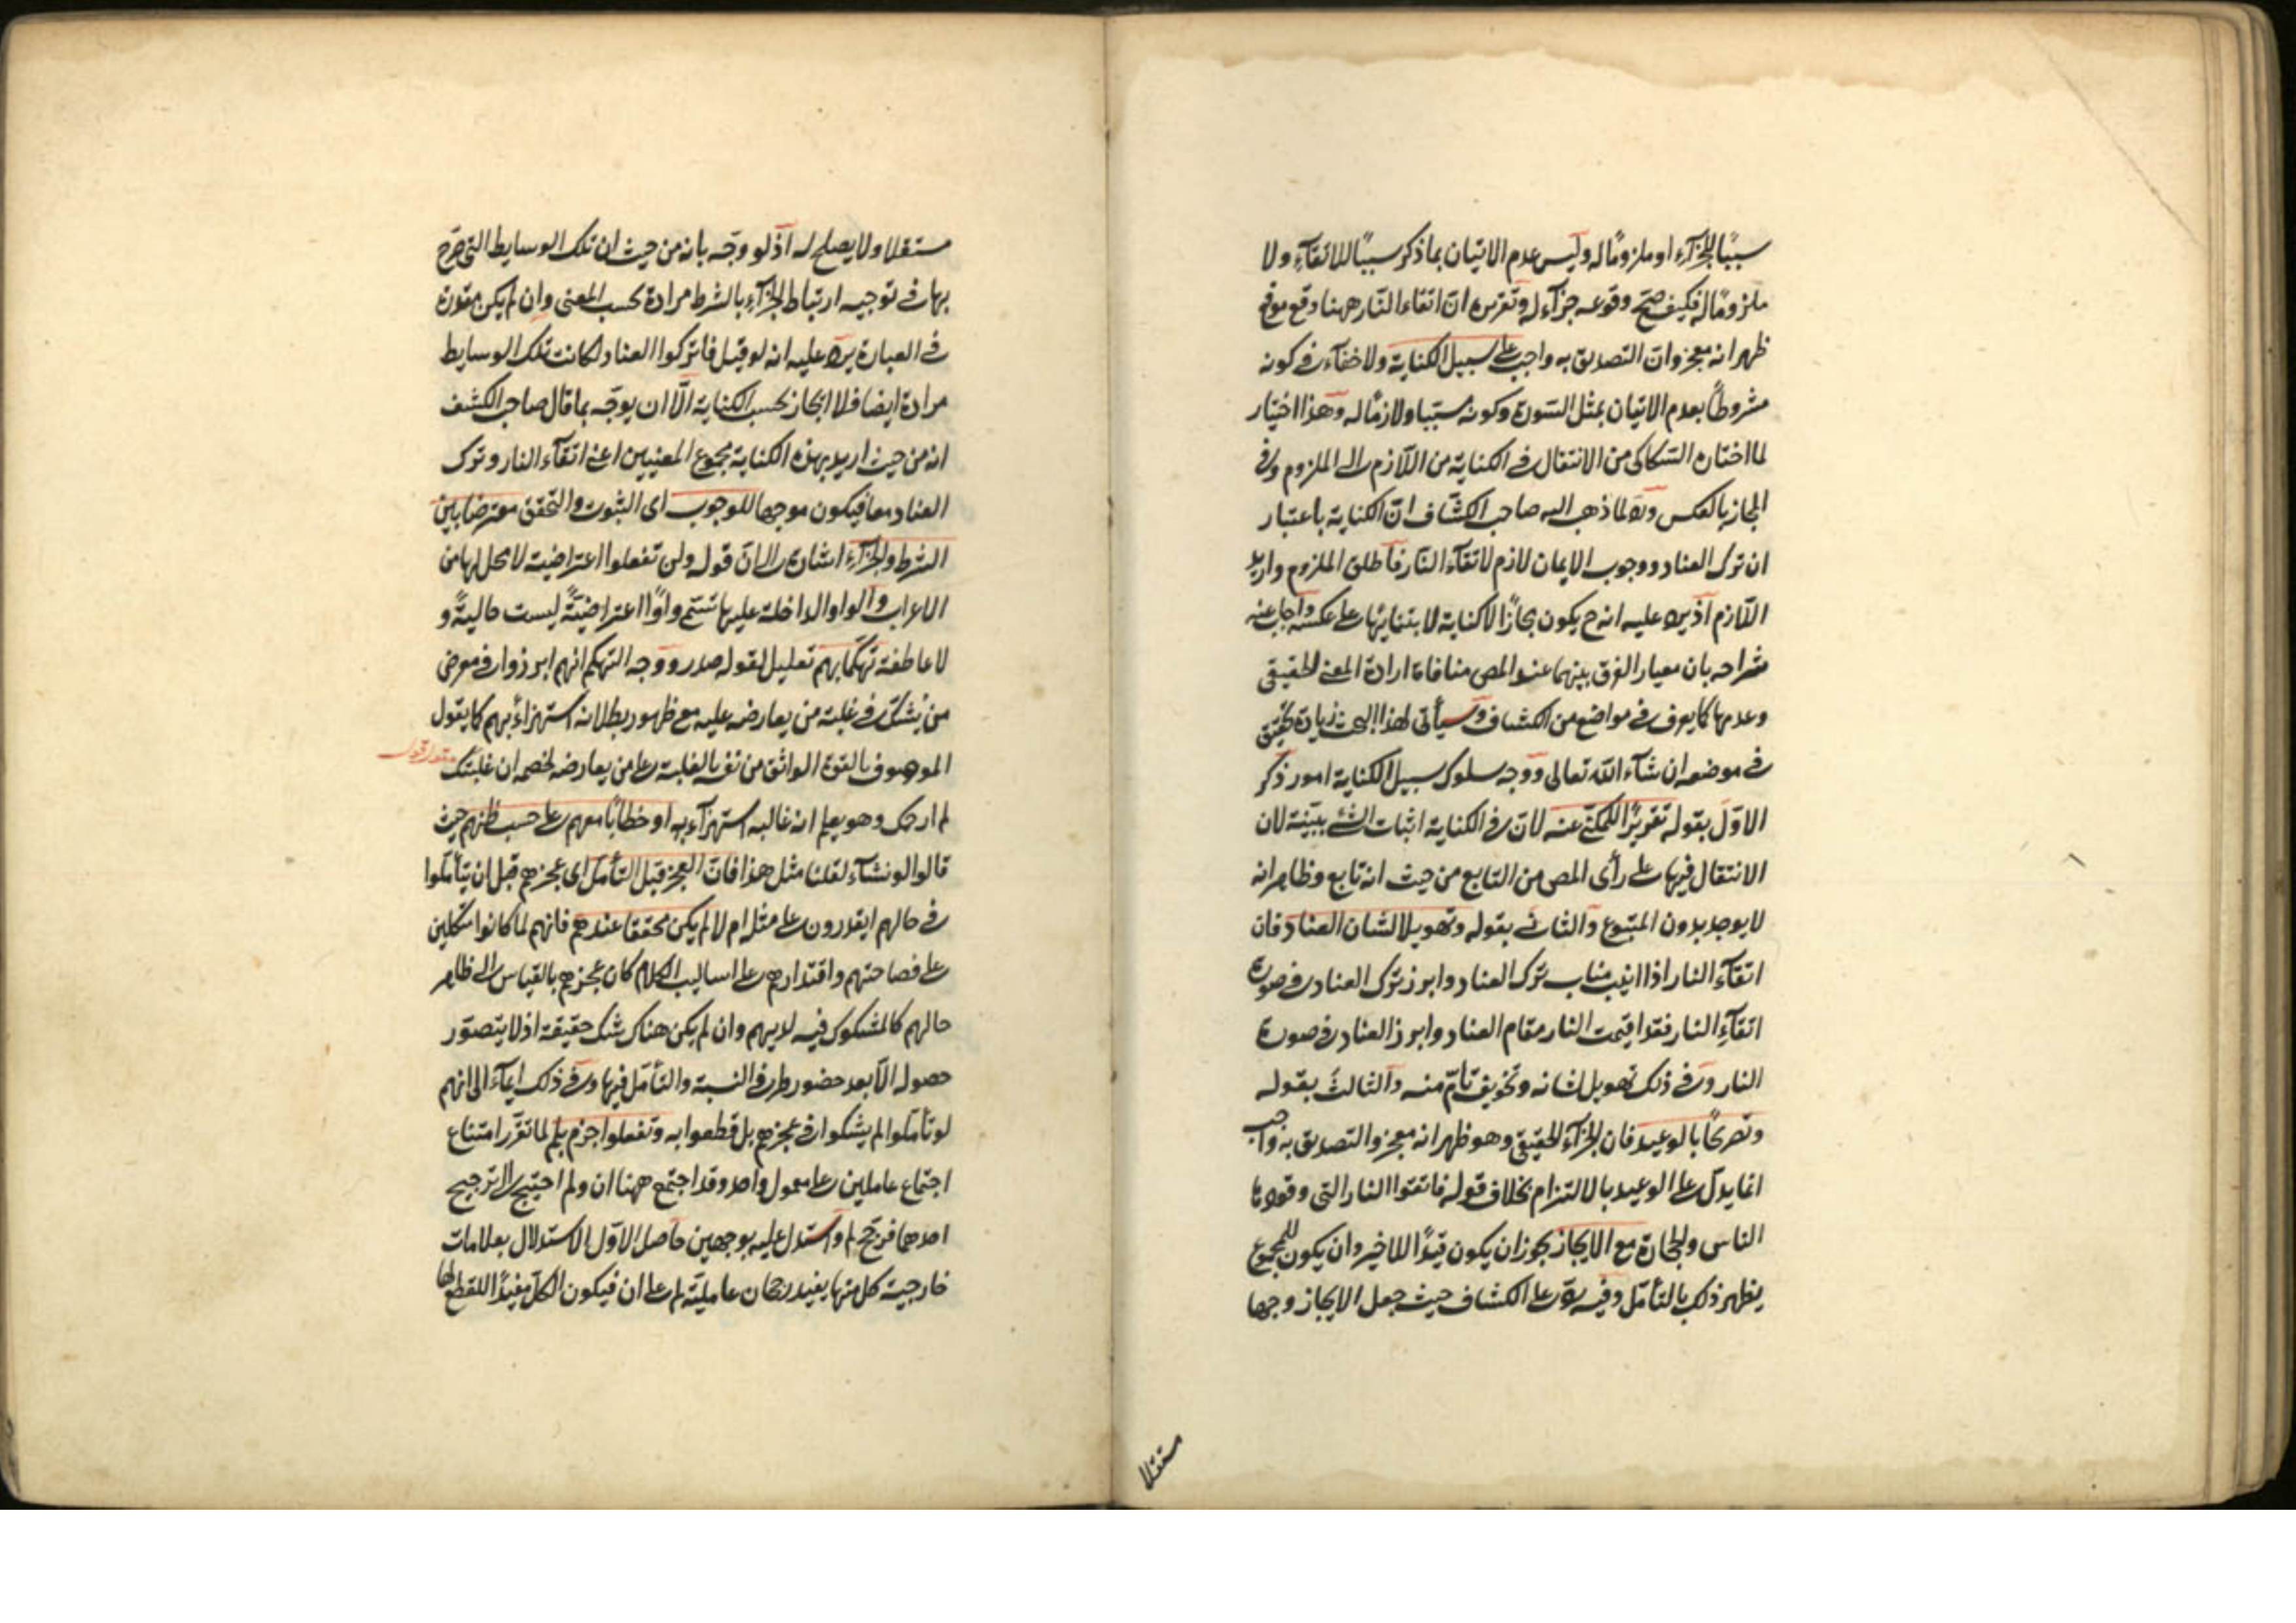 سببًا للجزآء او ملزومًا له وليس عدم الاتيان بما ذكر سببًا للاتقآء ولا
ملزومًا له فكيف صحّ وقوعه جزآء له وتقريره انّ اتقاء النّار ههنا وقع موقع
ظهر انه معجز وانّ التصديق به واجب على سبيل الكناية ولا خفآء في كونه
مشروطًا بعدم الاتيان بمثل السّورة وكونه مسببا ولازمًا له وهذا اختيار
لما اختاره السّكاكي من الانتقال في الكناية من اللّازم الى الملزوم وفي
المجاز بالعكس وردّ لما ذهب اليه صاحب الكشّاف انّ الكناية باعتبار
ان ترك العناد ووجوب الايمان لازم لاتقآء النّار فاطلق الملزوم واريد
اللّازم اذ يرد عليه انه ح يكون مجازًا لا كناية لابتنائها على عكسه واجاب عنه
شراحه بان معيار الفرق بينهما عند المص منافاة ارادة المعنى الحقيقي
وعدمها كما يعرف في مواضع من الكشاف وسيأتي لهذا البحث زيادة تحقيق
في موضعه ان شآء الله تعالى ووجه سلوك سبيل الكناية امور ذكر
الاوّل بقوله تقريرًا للمكنّى عنه لانّ في الكناية اثبات الشئ ببيّنة لان
الانتقال فيها على رأى المص من التابع من حيث انه تابع وظاهر انه
لا يوجد بدون المتبوع والثاني بقوله وتهويلا لشان العناد فان
اتقآء النار اذا انيب مناب ترك العناد وابرز ترك العناد في صورة
اتقآء النار فقد اقيمت النار مقام العناد وابرز العناد في صورة
النار وفي ذلك تهويل لشانه وتخويف تامّ منه والثالث بقوله
وتصريحًا بالوعيد فان الجزآء الحقيقي وهو ظهر انه معجز والتصديق به واجب
انما يدلّ على الوعيد بالالتزام بخلاف قوله فاتقوا النار التي وقودها
الناس والحجارة مع الايجاز يجوز ان يكون قيدًا للاخير وان يكون للمجموع
يظهر ذلك بالتأمّل وفيه ردّ على الكشاف حيث جعل الايجاز وجها
مستقلا
مستقلا ولا يصلح له اذ لو وجّه بانه من حيث ان تلك الوسايط التي صرّح
بها في توجيه ارتباط الجزآء بالشرط مرادة بحسب المعنى وان لم يكن مقدرة
في العبارة يرد عليه انه لو قيل فاتركوا العناد لكانت تلك الوسايط
مرادة ايضا فلا ايجاز بحسب الكناية الّا ان يوجّه بما قال صاحب الكشف
انه من حيث اريد بهذه الكناية مجموع المعنيين اعني اتقآء النار وترك
العناد معا فيكون موجها للوجوب اى الثبوت والتحقق معترضا بين
الشرط والجزآء اشارة الى انّ قوله ولن تفعلوا اعتراضية لا محل لها من
الاعراب والواو الداخلة عليها تسمّى واوًا اعتراضيّةً ليست حاليةً و
لا عاطفة تهكّما بهم تعليل لقوله صدر ووجه التهكم انهم ابرزوا في معرض
من يشكّ في غلبة من يعارضه عليه مع ظهور بطلانه استهزاءً بهم كما يقول
الموصوف بالقوّة الواثق من نفسه بالغلبة على من يعارضه لخصمه ان غلبتك
مقول قول
لم ارحمك وهو يعلم انه غالبه استهزآء به او خطابًا معهم على حسب ظنهم حيث
قالوا لو نشآء لقلنا مثل هذا فانّ العجز قبل التأمّل اى عجزهم قبل ان يتأمّلوا
في حالهم ايقدرون على مثله ام لا لم يكن محققا عندهم فانهم لما كانوا متكلين
على فصاحتهم واقتدارهم على اساليب الكلام كان عجزهم بالقياس الى ظاهر
حالهم كالمشكوك فيه لديهم وان لم يكن هناك شك حقيقة اذ لا يتصوّر
حصوله الّا بعد حضور طرفي النسبة والتأمّل فيها وفي ذلك ايمآء الى انهم
لو تأمّلوا لم يشكوا في عجزهم بل قطعوا به وتفعلوا جزم بلم لما تقرّر امتناع
اجتماع عاملين على معمول واحد وقد اجتمع ههنا ان ولم احتيج الى ترجيح
احدهما فرجّح لم واستدلّ عليه بوجهين حاصل الاوّل الاستدلال بعلامات
خارجية كل منها يفيد رجحان عاملية لم على ان فيكون الكلّ مفيدًا للقطع بها